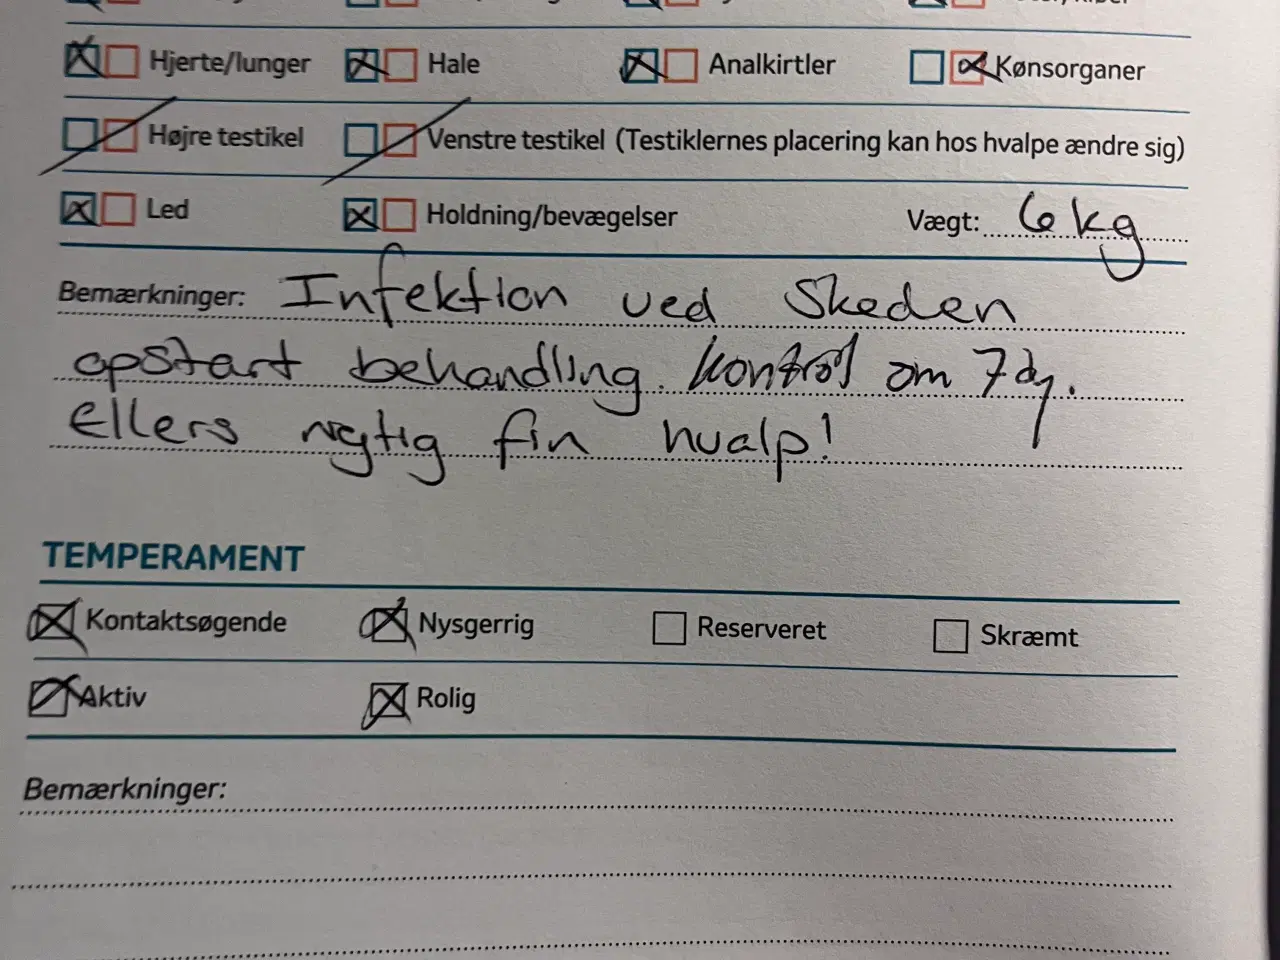 Hjerte/lunger Hale Analkirtler Kønsorganer
Højre testikel Venstre testikel (Testiklernes placering kan hos hvalpe ændre sig)
Led Holdning/bevægelser Vægt: 6 kg
Bemærkninger: Infektion ved Skeden
opstart behandling. kontrol om 7 dg.
ellers rigtig fin hvalp!
TEMPERAMENT
Kontaktsøgende Nysgerrig Reserveret Skræmt
Aktiv Rolig
Bemærkninger: